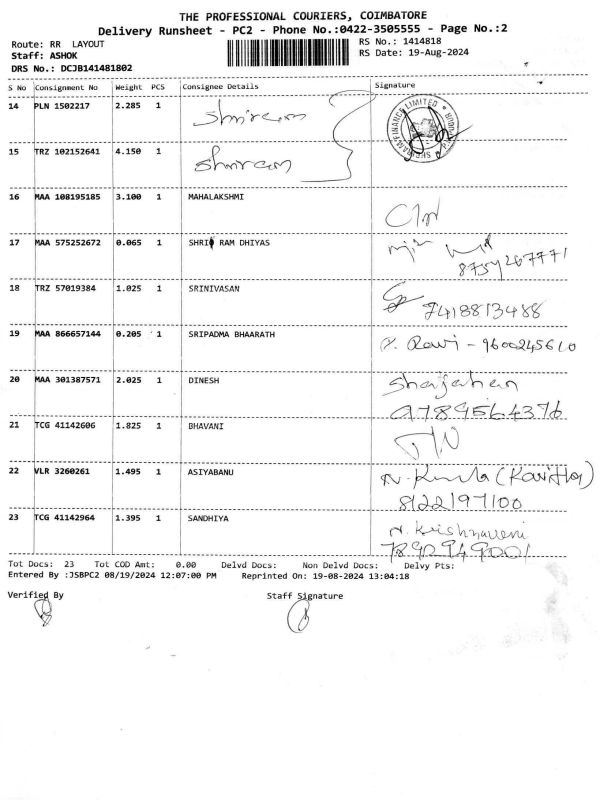 THE PROFESSIONAL COURIERS, COIMBATORE
Delivery Runsheet - PC2 - Phone No.:0422-3505555 - Page No.:2
Route: RR LAYOUT
RS No.: 1414818
Staff: ASHOK
RS Date: 19-Aug-2024
DRS No.: DCJB141481802
S No Consignment No Weight PCS Consignee Details Signature
14 PLN 1502217 2.285 1 Shriram
SHRIRAM FINANCE LIMITED
15 TRZ 102152641 4.150 1 Shriram
16 MAA 108195185 3.100 1 MAHALAKSHMI
17 MAA 575252672 0.065 1 SHRI RAM DHIYAS
8754267771
18 TRZ 57019384 1.025 1 SRINIVASAN
7418813488
19 MAA 866657144 0.205 1 SRIPADMA BHAARATH Ravi - 9600245610
20 MAA 301387571 2.025 1 DINESH Shajahan
9789564376
21 TCG 41142606 1.825 1 BHAVANI
22 VLR 3260261 1.495 1 ASIYABANU
8122197100
23 TCG 41142964 1.395 1 SANDHIYA N. Krishnaveni
Tot Docs: 23 Tot COD Amt: 0.00 Delvd Docs: Non Delvd Docs: Delvy Pts:
Entered By :JSBPC2 08/19/2024 12:07:00 PM Reprinted On: 19-08-2024 13:04:18
Verified By Staff Signature